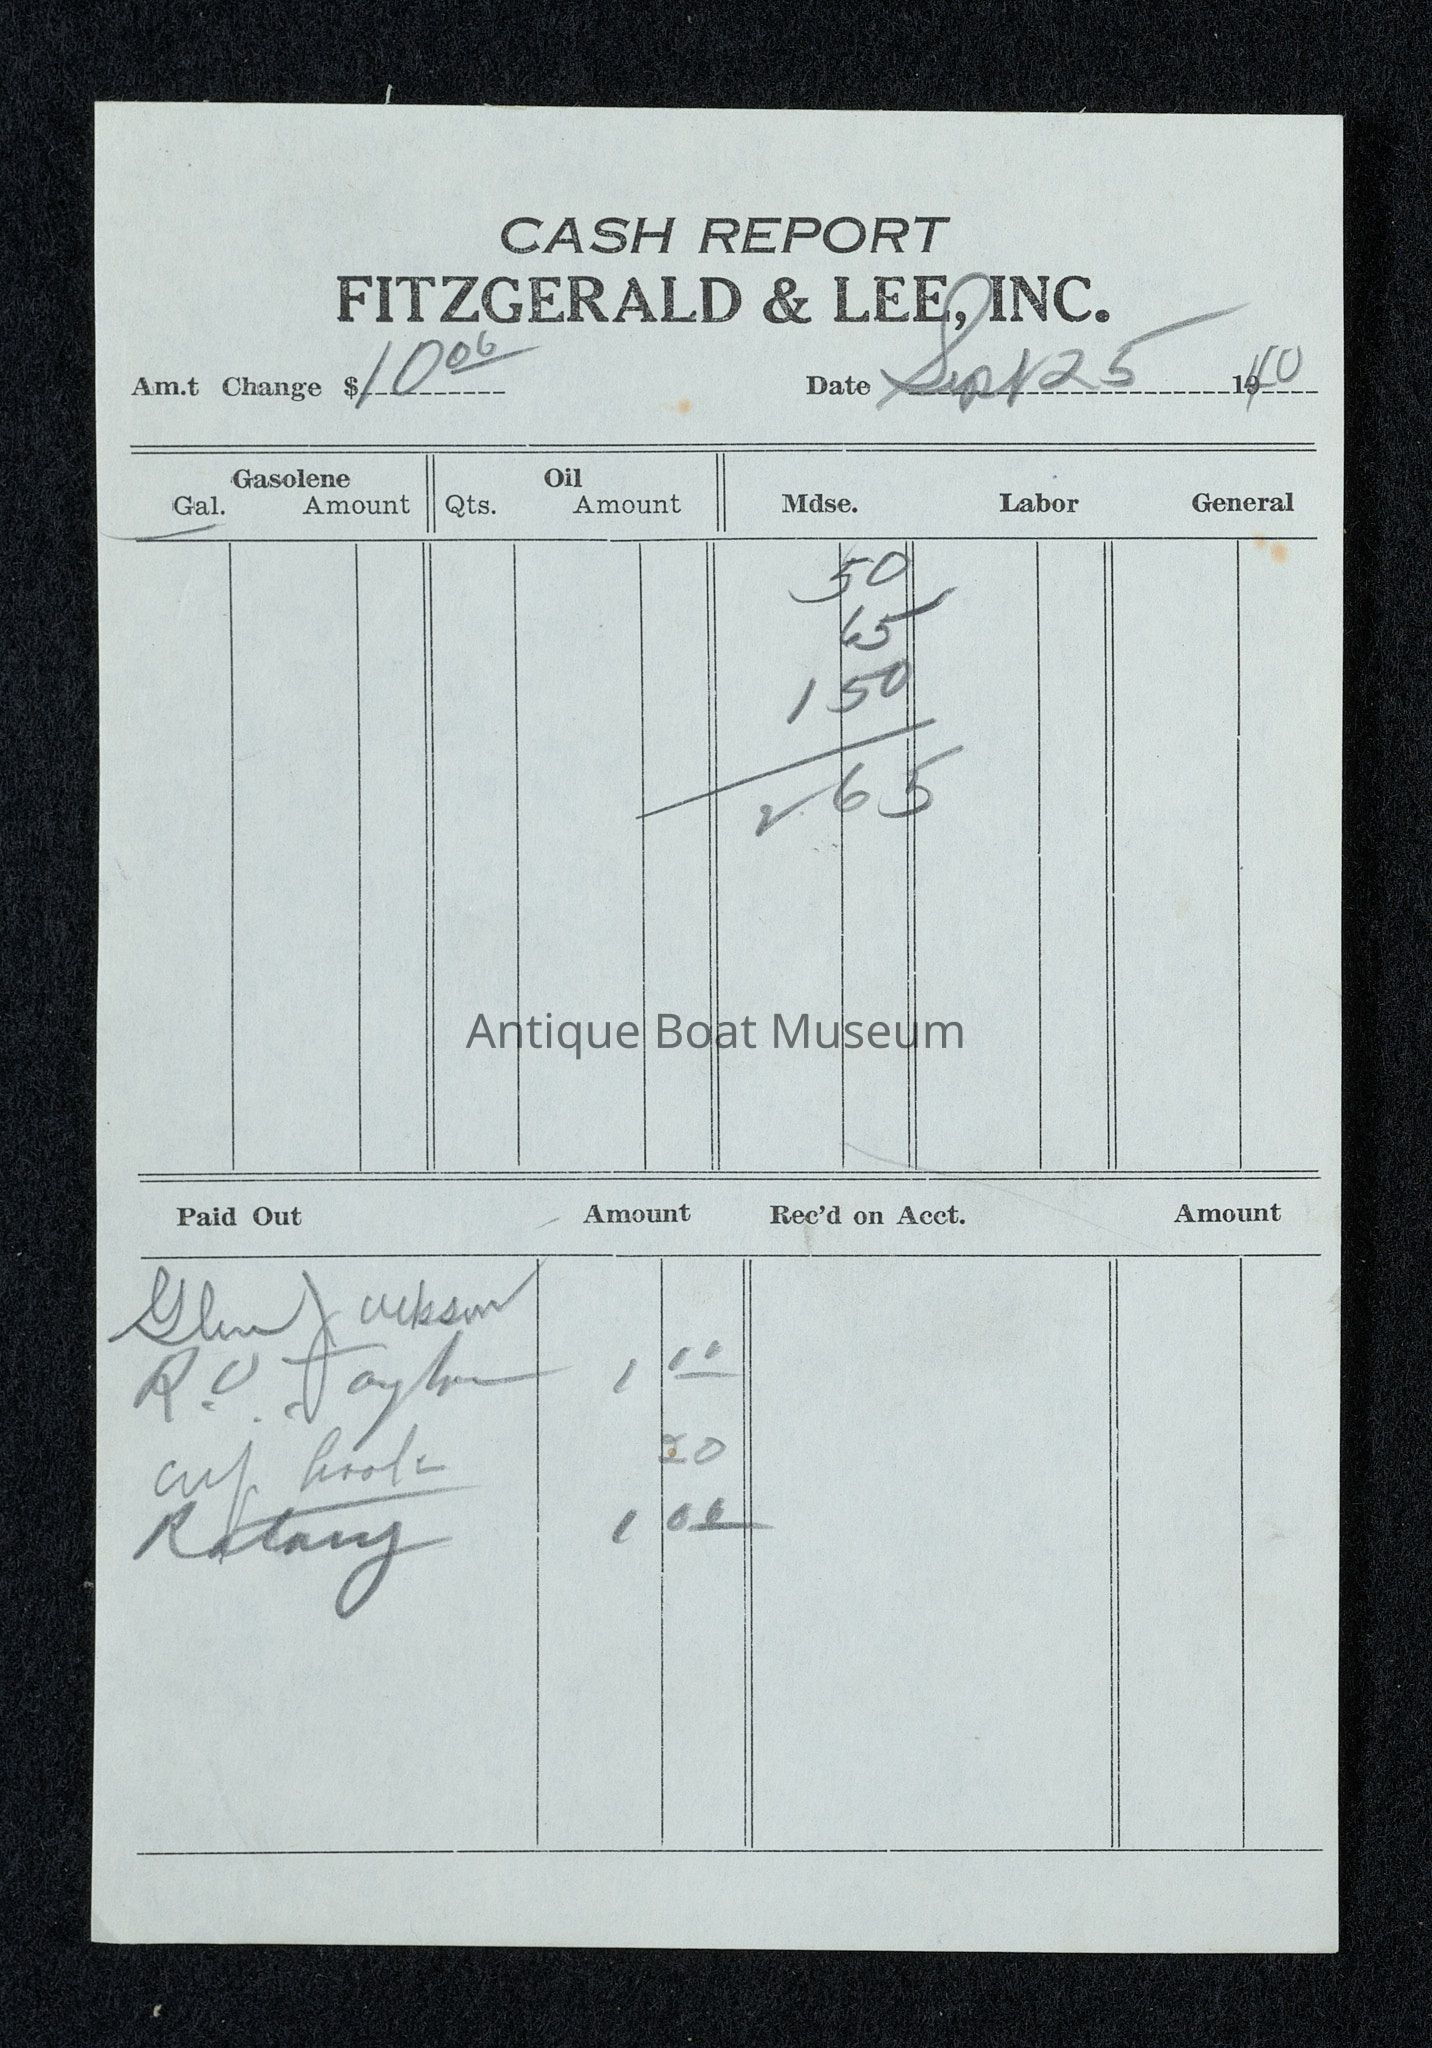 CASH REPORT
FITZGERALD & LEE, INC.
Am.t Change $ 10 00 Date Sept 25 1940
Gasolene Oil
Gal. Amount Qts. Amount Mdse. Labor General
50
65
1 50
2 65
Antique Boat Museum
Paid Out Amount Rec'd on Acct. Amount
Glenn Jackson
R.O. Taylor 1 00
cup hooks 20
Rotary 1 00